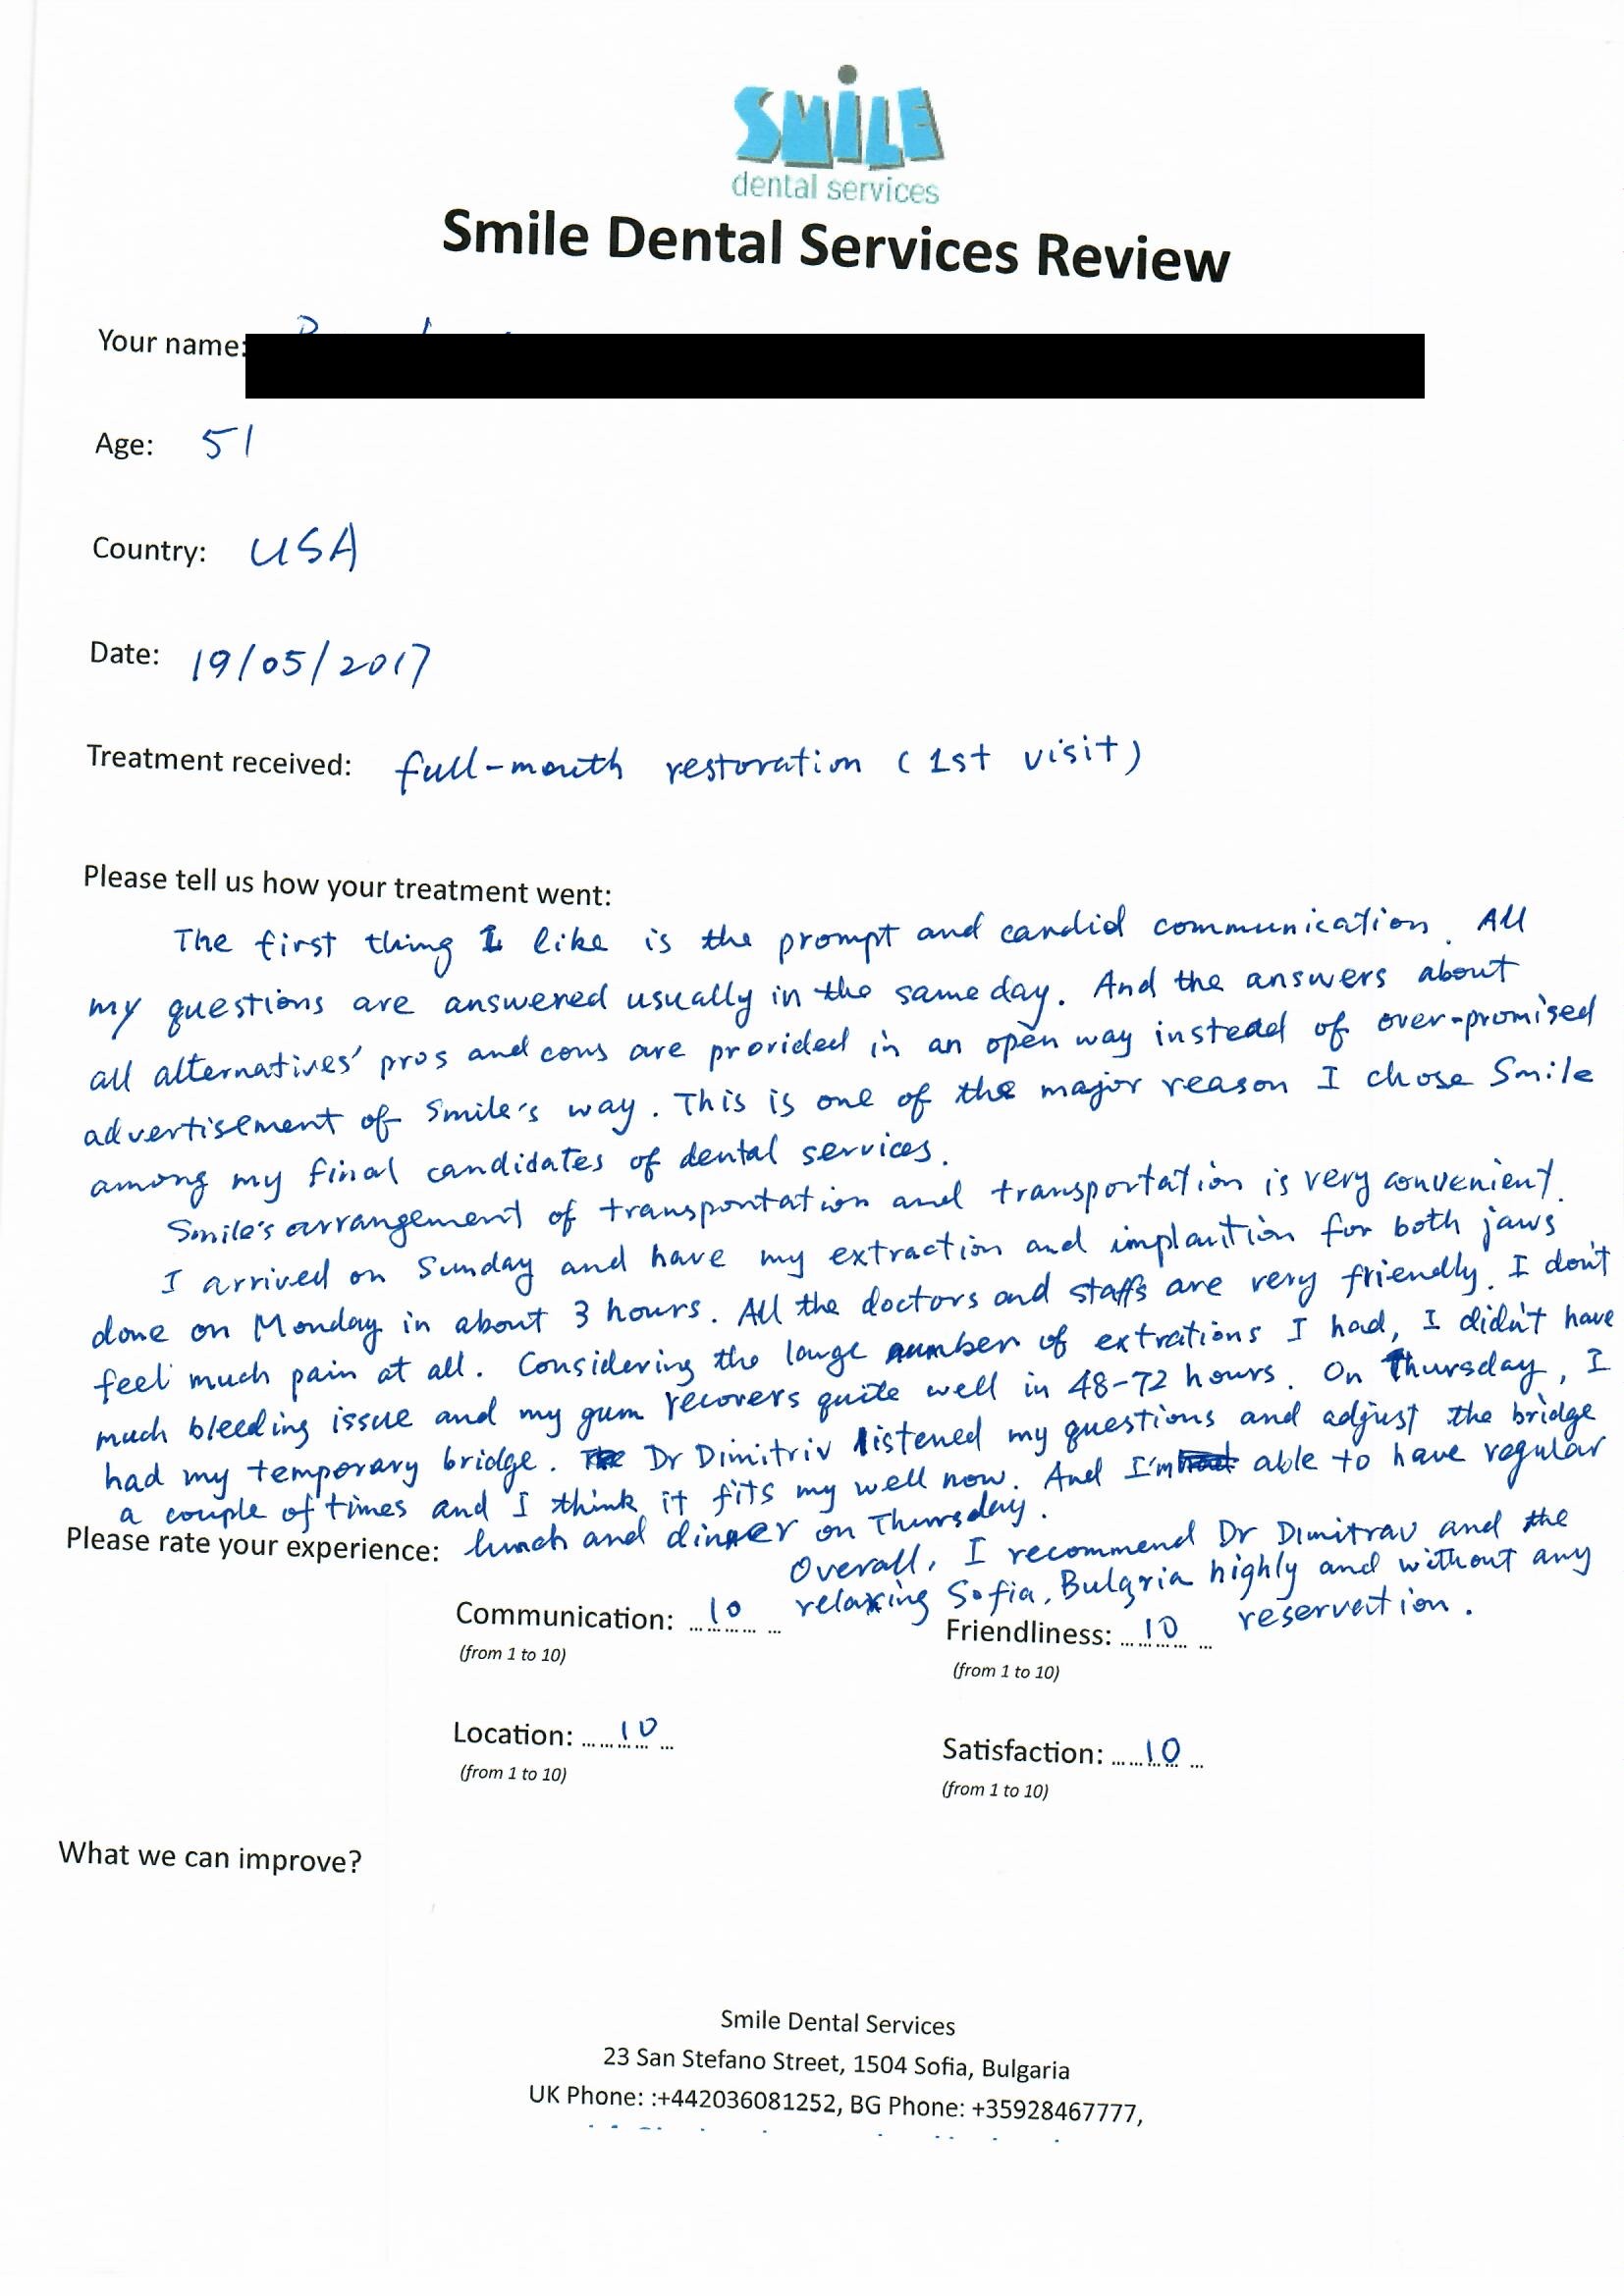 SMiLE
dental services
Smile Dental Services Review
Your name:
Age: 51
Country: USA
Date: 19/05/2017
Treatment received: full-mouth restoration (1st visit)
Please tell us how your treatment went:
The first thing I like is the prompt and candid communication. All
my questions are answered usually in the same day. And the answers about
all alternatives' pros and cons are provided in an open way instead of over-promised
advertisement of Smile's way. This is one of the major reason I chose Smile
among my final candidates of dental services.
Smile's arrangement of transportation and transportation is very convenient.
I arrived on Sunday and have my extraction and implantion for both jaws
done on Monday in about 3 hours. All the doctors and staffs are very friendly. I don't
feel much pain at all. Considering the large number of extrations I had, I didn't have
much bleeding issue and my gum recovers quite well in 48-72 hours. On Thursday, I
had my temporary bridge. Dr Dimitriv listened my questions and adjust the bridge
a couple of times and I think it fits my well now. And I'm able to have regular
lunch and dinner on Thursday.
Overall, I recommend Dr Dimitrav and the
relaxing Sofia, Bulgria highly and without any
reservation.
Please rate your experience:
Communication: 10
(from 1 to 10)
Friendliness: 10
(from 1 to 10)
Location: 10
(from 1 to 10)
Satisfaction: 10
(from 1 to 10)
What we can improve?
Smile Dental Services
23 San Stefano Street, 1504 Sofia, Bulgaria
UK Phone: :+442036081252, BG Phone: +35928467777,